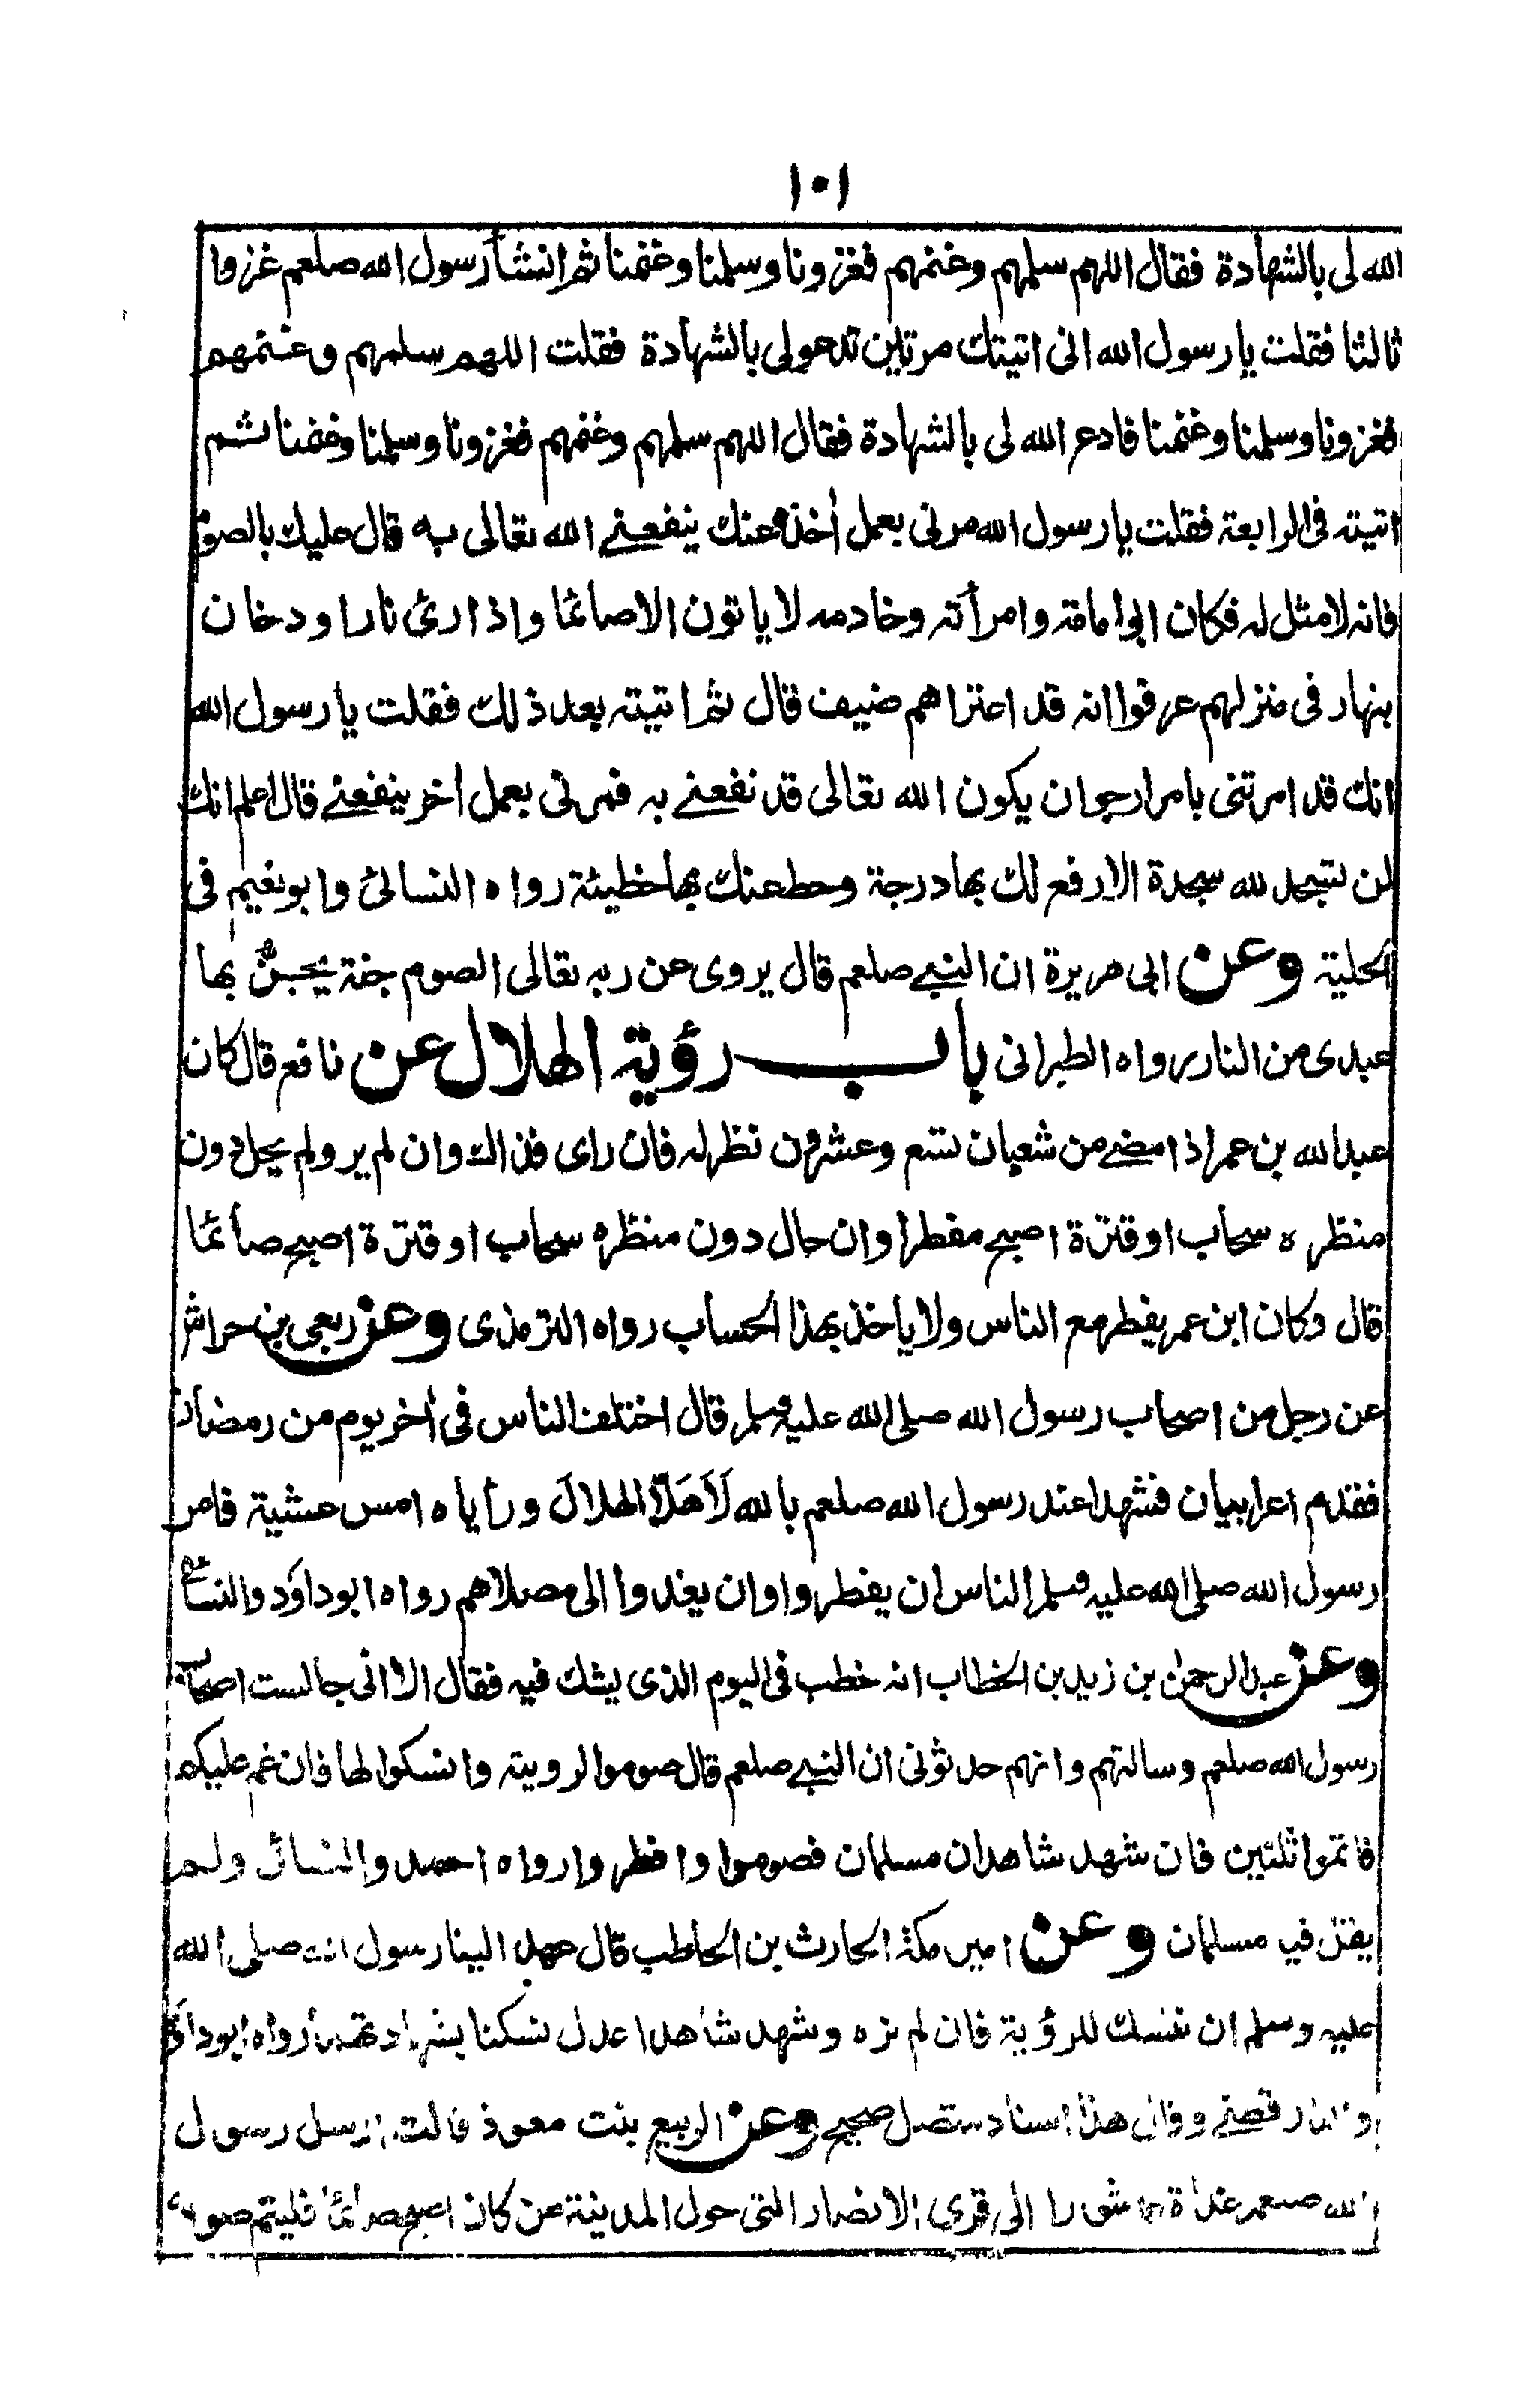 ١٠١
الله لى بالشهادة فقال اللهم سلمهم وغنمهم فغزونا وسلمنا وغنمنا ثم انشأ رسول الله صلعم غزوا
ثالثا فقلت يا رسول الله انى اتيتك مرتين تدعو لى بالشهادة فقلت اللهم سلمهم وغنمهم
فغزونا وسلمنا وغنمنا فادع الله لى بالشهادة فقال اللهم سلمهم وغنمهم فغزونا وسلمنا وغنمنا ثم
اتيته فى الرابعة فقلت يا رسول الله مرنى بعمل أخذه عنك ينفعنے الله تعالى به قال عليك بالصوم
فانه لا مثل له فكان ابو امامة وامرأته وخادمه لا ياتون الا صائما واذا رئ نارا ودخان
بنهار فى منزلهم عرفوا انه قد اعتراهم ضيف قال ثم اتيته بعد ذلك فقلت يا رسول الله
انك قد امرتنى بامر ارجو ان يكون الله تعالى قد نفعنے به فمرنى بعمل أخر ينفعنے قال اعلم انك
لن تسجد لله سجدة الا رفع لك بها درجة وحط عنك بها خطيئة رواه النسائئ وابو نعيم فى
الحلية وعن ابى هريرة ان النبے صلعم قال يروى عن ربه تعالى الصوم جنة يجنّ بها
عبدى من النار رواه الطبرانى باب رؤية الهلال عن نافع قال كان
عبد الله بن عمر اذا مضے من شعبان تسع وعشرون نظر له فان راى فذاك وان لم ير ولم يحل دون
منظره سحاب او قترة اصبح مفطرا وان حال دون منظره سحاب او قترة اصبح صائما
قال وكان ابن عمر يفطر مع الناس ولا ياخذ بهذا الحساب رواه الترمذى وعن ربعى بن حراش
عن رجل من اصحاب رسول الله صلى الله عليه وسلم قال اختلف الناس فى أخر يوم من رمضان
فقدم اعرابيان فشهدا عند رسول الله صلعم بالله لَأَهَلَّا الهلالَ ورأياه امس عشية فامر
رسول الله صلى الله عليه وسلم الناس ان يفطروا وان يغدوا الى مصلاهم رواه ابو داؤد والنسائئ
وعن عبد الرحمن بن زيد بن الخطاب انه خطب فى اليوم الذى يشك فيه فقال الا انى جالست اصحاب
رسول الله صلعم وسالتهم وانهم حدثونى ان النبے صلعم قال صوموا لرويته وانسكوا لها فان غم عليكم
فاتموا ثلثين فان شهد شاهدان مسلمان فصوموا وافطروا رواه احمد والنسائى ولم
يقل فيه مسلمان وعن امير مكة الحارث بن الحاطب قال عهد الينا رسول الله صلى الله
عليه وسلم ان ننسك للرؤية فان لم نره وشهد شاهدا عدل نسكنا بشهادتهما رواه ابو داؤد
والدار قطنے وقال هذا اسناد متصل صحيح وعن الربيع بنت معوذ قالت ارسل رسول
الله صلعم غداة عاشورا الى قرى الانصار التى حول المدينة من كان اصبح صائما فليتم صومه